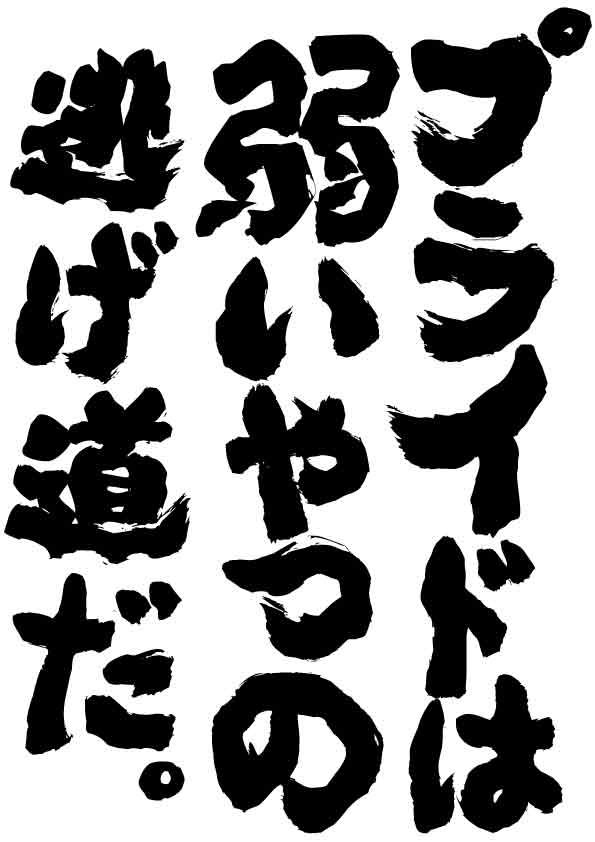 プライドは
弱いやつの
逃げ道だ。